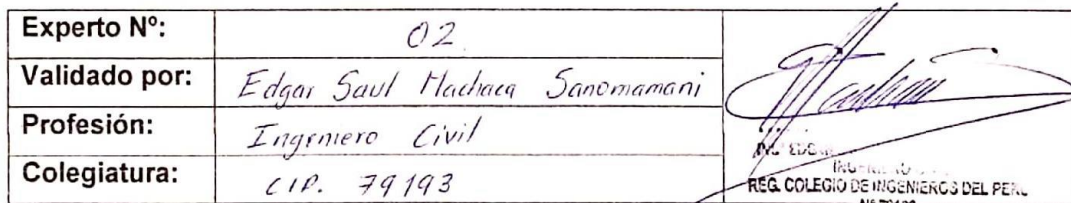 Experto Nº: 02
Validado por: Edgar Saul Machaca Sanomamani
Profesión: Ingeniero Civil
Colegiatura: CIP. 79193
REG. COLEGIO DE INGENIEROS DEL PERU